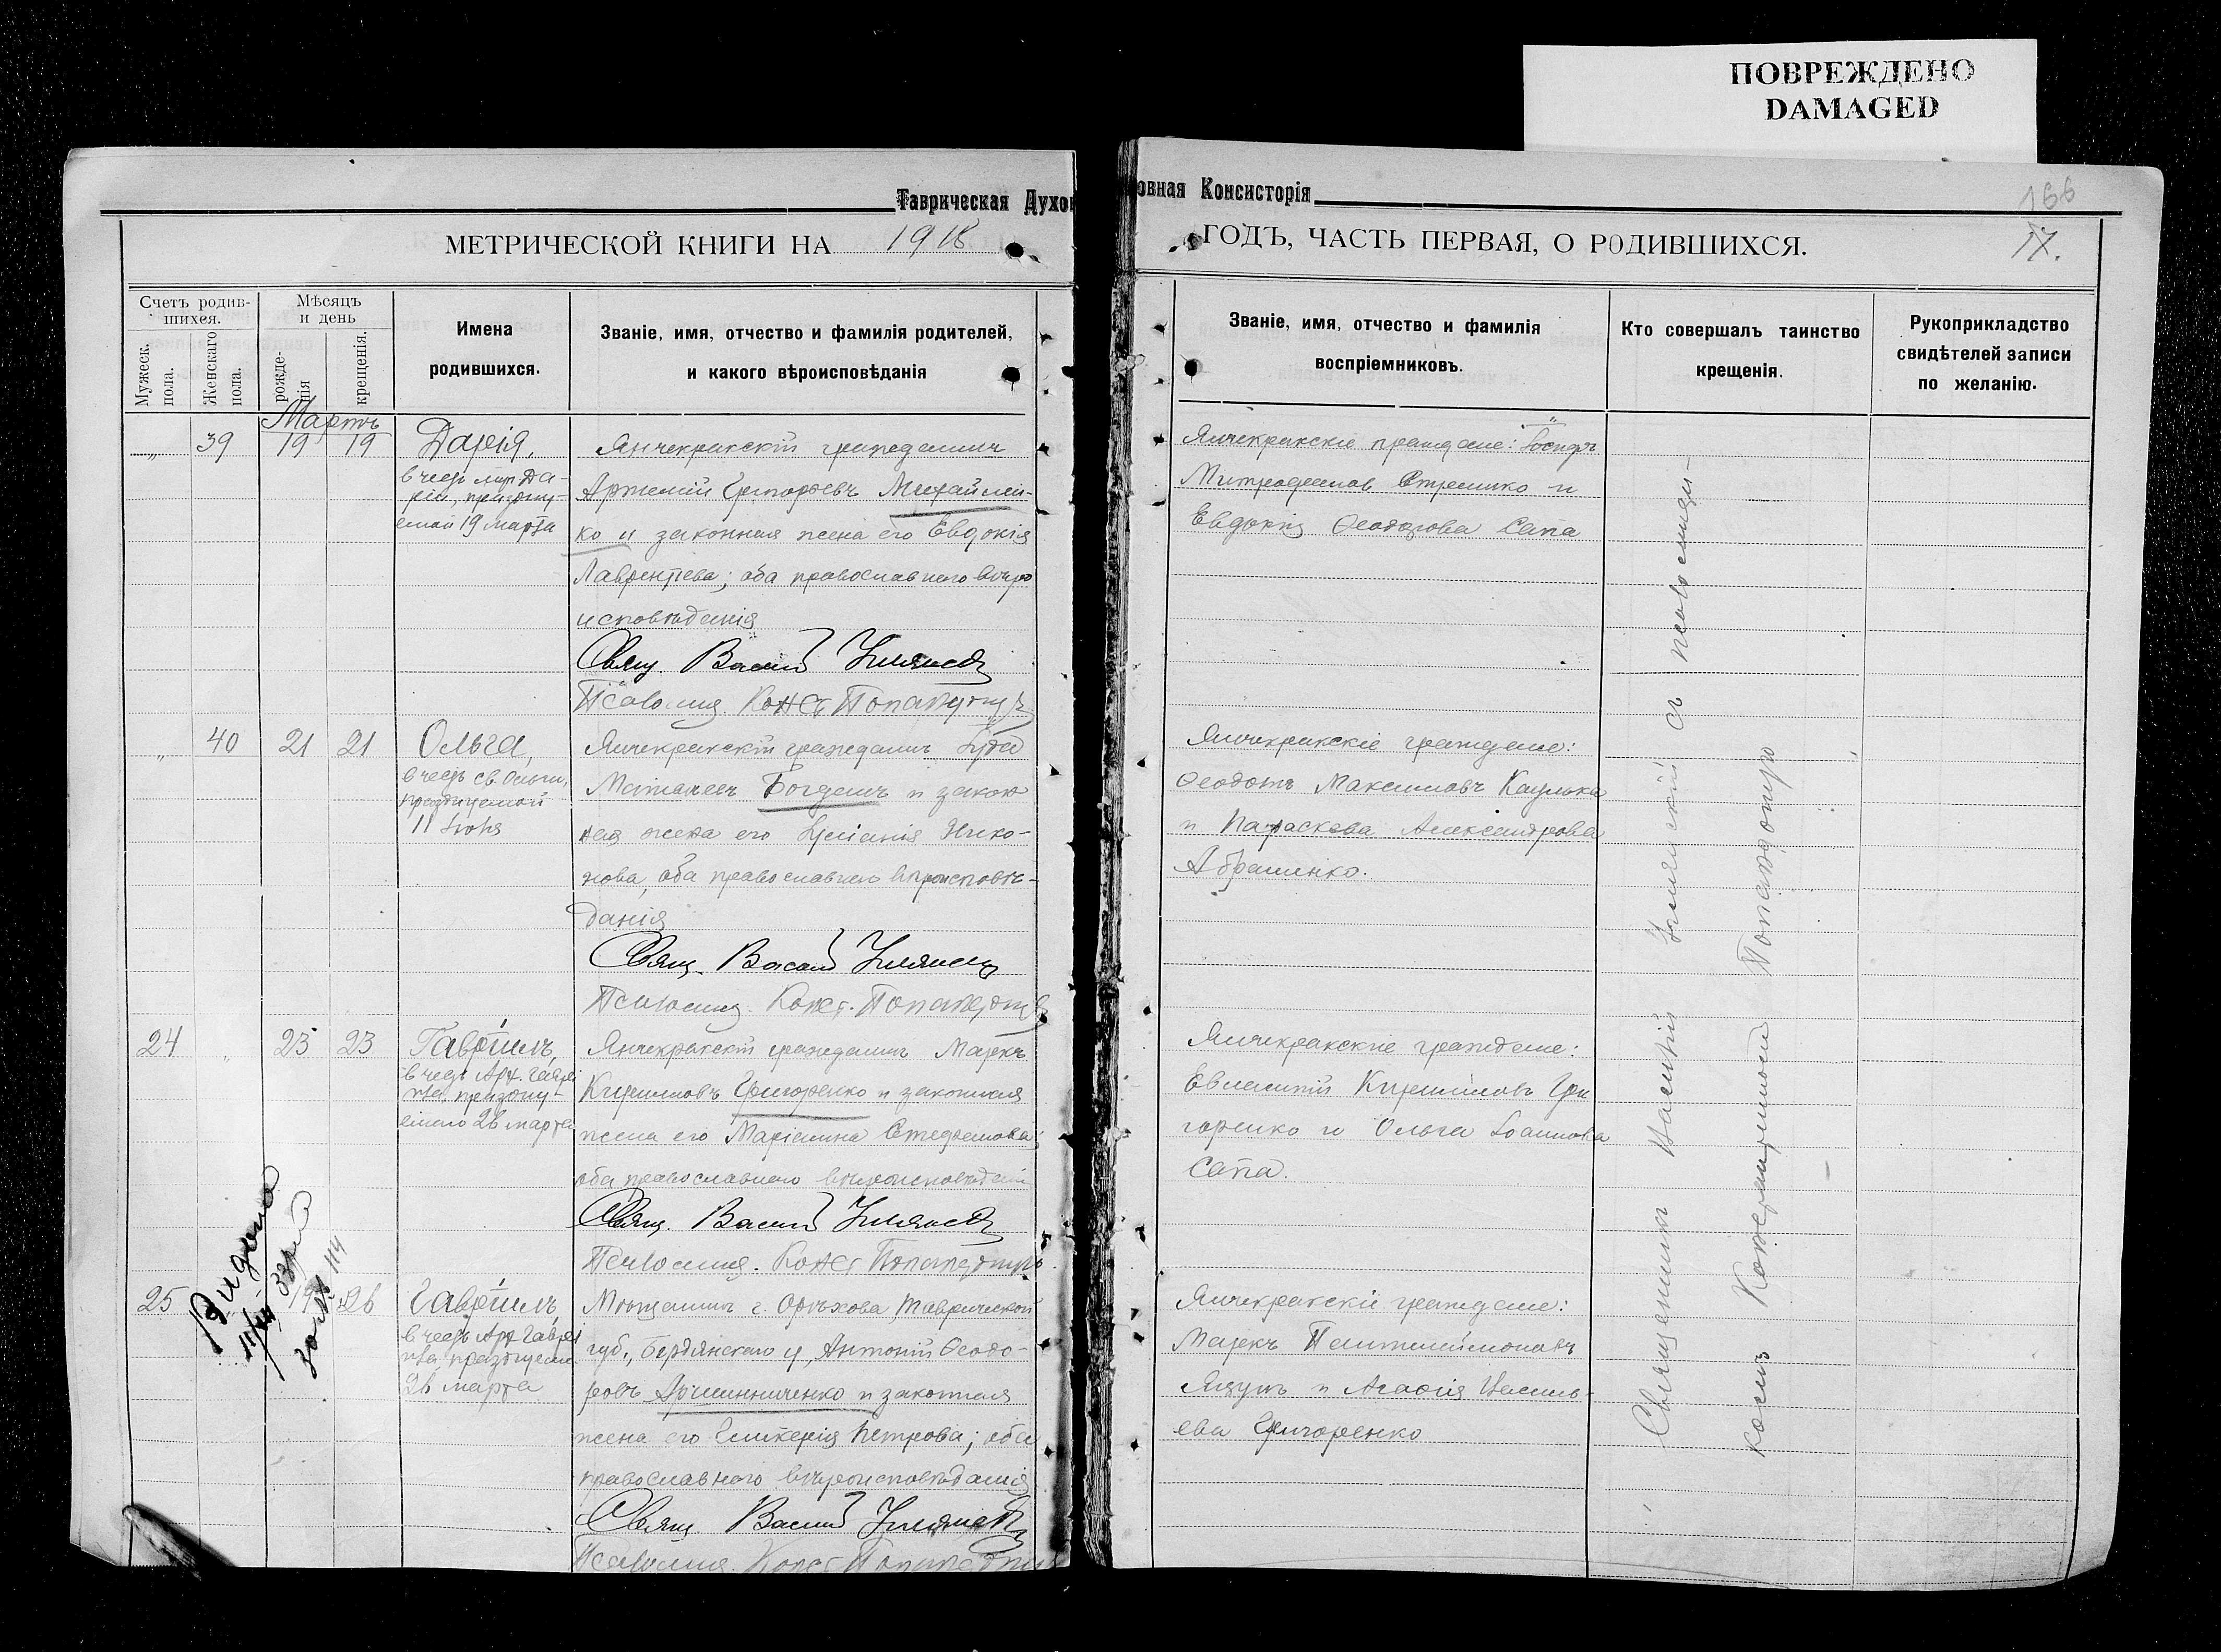 ПОВРЕЖДЕНО
DAMAGED
Таврическая Духовная Консисторія
166
МЕТРИЧЕСКОЙ КНИГИ НА 1918 ГОДЪ, ЧАСТЬ ПЕРВАЯ, О РОДИВШИХСЯ.
17.
Счетъ родив-
шихся.
Мужеск.
пола.
Женскаго
пола.
Мѣсяцъ
и день
рожде-
нія
крещенія.
Имена
родившихся.
Званіе, имя, отчество и фамилія родителей,
и какого вѣроисповѣданія
Званіе, имя, отчество и фамилія
воспріемниковъ.
Кто совершалъ таинство
крещенія.
Рукоприкладство
свидѣтелей записи
по желанію.
Мартъ
„ 39 19 19
Дарія,
в честь муч. Да-
ріи, праздну-
емой 19 марта
Янчекракскій гражданинъ
Артемій Григорьевъ Михайлен-
ко и законная жена его Евдокія
Лаврентіева; оба православнаго вѣро
исповѣданія
Свящ. Василій
Псаломщ. Конст.
Янчекракскіе граждане:
Митрофановъ и
Евдокія Ѳеодорова Сапа
„ 40 21 21
Ольга,
в честь св. Ольги,
празднуемой
11 Іюля
Янчекракскій гражданинъ
Богданъ и закон
ная жена его Нико-
нова, оба православнаго вѣроисповѣ-
данія
Свящ. Василій
Псаломщ. Конст.
Янчекракскіе граждане:
Ѳеодотъ Максимовъ
и Параскева Александрова
Абраменко.
24 „ 23 23
Гавріилъ,
в честь Арх. Гаврі
ила, праздну-
емаго 26 марта
Янчекракскій гражданинъ Маркъ
Кирилловъ Григоренко и законная
жена его Маріанна Стефанова;
оба православнаго вѣроисповѣданія
Свящ. Василій
Псаломщ. Конст.
Янчекракскіе граждане:
Евлампій Кирилловъ Гри
горенко и Ольга Іоаннова
Сапа.
25 19 26
Гавріилъ,
в честь Арх. Гаврі
ила, празднуем.
26 марта
Мѣщанинъ г. Орѣхова, Таврической
губ., Бердянскаго у., Антоній Ѳеодо-
ровъ и законная
жена его Гликерія Петрова; оба
православнаго вѣроисповѣданія
Свящ. Василій
Псаломщ. Конст.
Янчекракскіе граждане:
Маркъ Пантелеймоновъ
и Агафія Василь-
ева Григоренко
Священникъ Василій съ псаломщи-
комъ Константиномъ